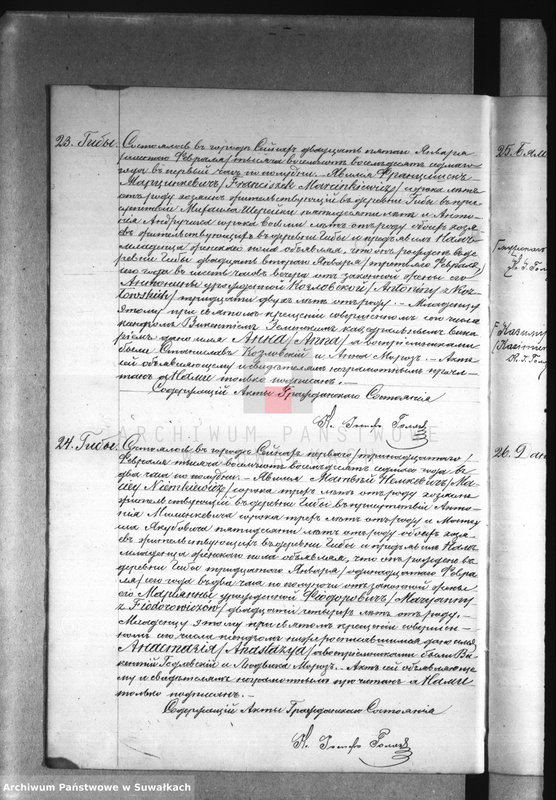 23. Гибы. Состоялось въ городѣ Сейнахъ двадцать пятаго Января
/шестаго Февраля/ тысяча восемьсотъ восемьдесятъ седьмаго
года въ первый часъ по полудни. Явился Францишекъ
Марцинкевичъ /Franciszek Marcinkiewicz/ сорока лѣтъ
отъ роду хозяинъ жительствующій въ деревнѣ Гибы въ при-
сутствіи Михаила пятидесяти лѣтъ и Анто-
нія Андручика сорока лѣтъ отъ роду обоихъ хозя-
евъ жительствующихъ въ деревнѣ Гибы и предъявилъ Намъ
младенца женскаго пола объявляя, что онъ рожденъ въ де-
ревнѣ Гибы двадцать втораго Января /третьяго Февраля/
сего года въ шесть часовъ вечера отъ законной жены его
Антонины урожденной Козловской /Antoniny z Koz-
łowskich/ тридцати двухъ лѣтъ отъ роду. — Младенцу
этому при святомъ крещеніи совершенномъ сего числа
ксендзомъ Викентіемъ викa-
ріемъ дано имя Анна /Anna/ а воспріемниками
были Станиславъ Козловскій и Анна Мороз. — Актъ
сей объявляющему и свидѣтелямъ неграмотнымъ прочи-
танъ Нами только подписанъ. —
Содержащій Акты Гражданскаго Состоянія
ARCHIWUM PAŃSTWOWE
24. Гибы. Состоялось въ городѣ Сейнахъ перваго /тринадцатаго/
Февраля тысяча восемьсотъ восемьдесятъ седьмаго года въ
два часа по полудни. — Явился Матвѣй Немкевичъ /Ma-
ciey Niemkiewicz/ сорока трехъ лѣтъ отъ роду хозяинъ
жительствующій въ деревнѣ Гибы въ присутствіи Анто-
нія сорока трехъ лѣтъ отъ роду и
Якубовича пятидесяти лѣтъ отъ роду обоихъ хозя-
евъ жительствующихъ въ деревнѣ Гибы и предъявилъ Намъ
младенца женскаго пола объявляя, что онъ рожденъ въ
деревнѣ Гибы тридцатаго Января /одинадцатаго Февра-
ля/ сего года въ два часа по полуночи отъ законной жены
его Маріанны урожденной Фёдоровичъ /Maryanny
z Fiodorowiczów/ двадцати четырехъ лѣтъ отъ роду. —
Младенцу этому при святомъ крещеніи совершен-
номъ сего числа ксендзомъ дано имя
Анастазія /Anastazya/ а воспріемниками были Ви-
кентій и Людвика Мороз. — Актъ сей объявляюще-
му и свидѣтелямъ неграмотнымъ прочитанъ Нами
только подписанъ. —
Содержащій Акты Гражданскаго Состоянія
25.
26.
Archiwum Państwowe w Suwałkach